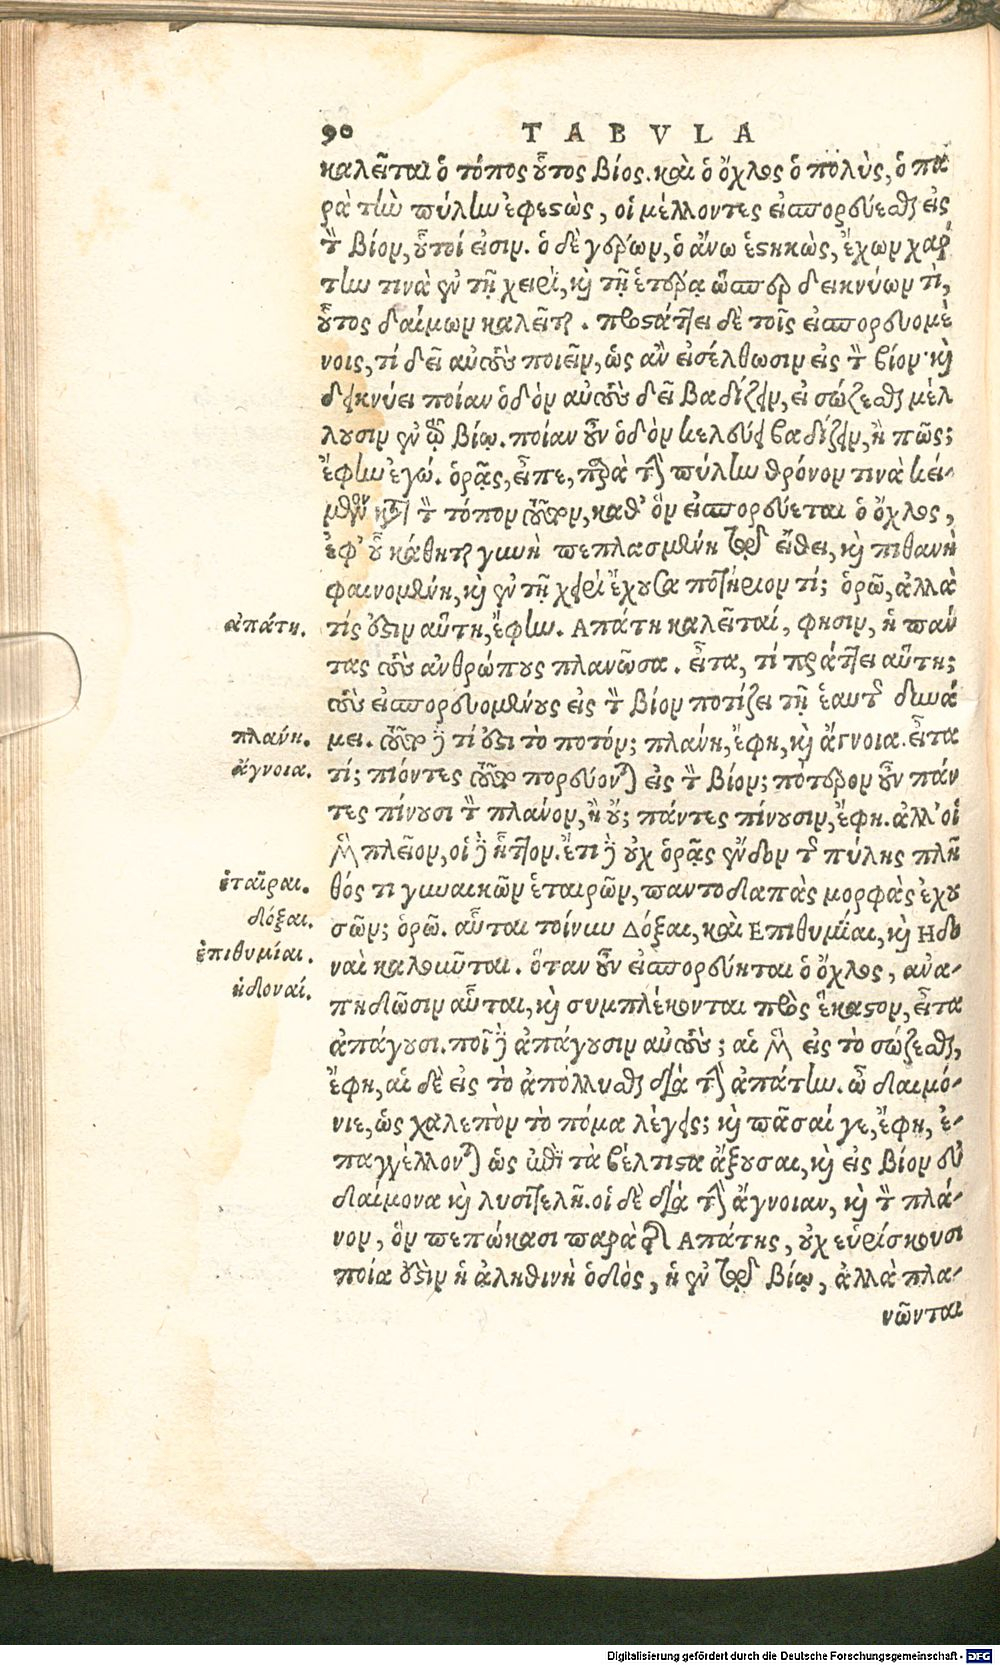 90 TABVLA
καλεῖται ὁ τόπος οὗτος βίος. καὶ ὁ ὄχλος ὁ πολὺς, ὁ πα
ρὰ τὴν πύλην ἐφεστὼς, οἱ μέλλοντες εἰσπορεύεσθαι εἰς
τὸν βίον, οὗτοί εἰσιν. ὁ δὲ γέρων, ὁ ἄνω ἑστηκὼς, ἔχων χάρ
την τινὰ ἐν τῇ χειρὶ, καὶ τῇ ἑτέρᾳ ὥσπερ δεικνύων τὶ,
οὗτος δαίμων καλεῖται. προστάττει δὲ τοῖς εἰσπορευομέ
νοις, τί δεῖ αὐτοὺς ποιεῖν, ὡς ἂν εἰσέλθωσιν εἰς τὸν βίον· καὶ
δεικνύει ποίαν ὁδὸν αὐτοὺς δεῖ βαδίζειν, εἰ σώζεσθαι μέλ
λουσιν ἐν τῷ βίῳ. ποίαν οὖν ὁδὸν κελεύει βαδίζειν, ἢ πῶς;
ἔφην ἐγώ. ὁρᾷς, εἶπε, παρὰ τὴν πύλην θρόνον τινὰ κεί-
μενον κατὰ τὸν τόπον τοῦτον, καθ' ὃν εἰσπορεύεται ὁ ὄχλος,
ἐφ' οὗ κάθηται γυνὴ πεπλασμένη τῷ εἴδει, καὶ πιθανὴ
φαινομένη, καὶ ἐν τῇ χειρὶ ἔχουσα ποτήριον τί; ὁρῶ, ἀλλὰ
ἀπάτη. τίς ἐστιν αὕτη, ἔφην. Ἀπάτη καλεῖταί, φησιν, ἡ πάν
τας τοὺς ἀνθρώπους πλανῶσα. εἶτα, τί πράττει αὕτη;
τοὺς εἰσπορευομένους εἰς τὸν βίον ποτίζει τῇ ἑαυτῆς δυνά
πλάνη. μει. τοῦτο δὲ τί ἐστι τὸ ποτόν; πλάνη, ἔφη, καὶ ἄγνοια. εἶτα
ἄγνοια. τί; πιόντες τοῦτο πορεύονται εἰς τὸν βίον; πότερον οὖν πάν
τες πίνουσι τὸν πλάνον, ἢ οὔ; πάντες πίνουσιν, ἔφη. ἀλλ' οἱ
μὲν πλεῖον, οἱ δὲ ἧττον. ἔτι δὲ οὐχ ὁρᾷς ἔνδον τῆς πύλης πλῆ
ἑταῖραι. θός τι γυναικῶν ἑταιρῶν, παντοδαπὰς μορφὰς ἐχου
δόξαι. σῶν; ὁρῶ. αὗται τοίνυν Δόξαι, καὶ Ἐπιθυμίαι, καὶ Ἡδο
ἐπιθυμίαι. ναὶ καλοῦνται. ὅταν οὖν εἰσπορεύηται ὁ ὄχλος, ἀνα-
ἡδοναί. πηδῶσιν αὗται, καὶ συμπλέκονται πρὸς ἕκαστον, εἶτα
ἀπάγουσι. ποῖ δὲ ἀπάγουσιν αὐτούς; αἱ μὲν εἰς τὸ σώζεσθαι,
ἔφη, αἱ δὲ εἰς τὸ ἀπόλλυσθαι διὰ τὴν ἀπάτην. ὦ δαιμό-
νιε, ὡς χαλεπὸν τὸ πόμα λέγεις; καὶ πᾶσαί γε, ἔφη, ἐ-
παγγέλλονται ὡς ἐπὶ τὰ βέλτιστα ἄξουσαι, καὶ εἰς βίον εὐ
δαίμονα καὶ λυσιτελῆ. οἱ δὲ διὰ τὴν ἄγνοιαν, καὶ τὸν πλά-
νον, ὃν πεπώκασι παρὰ τῆς Ἀπάτης, οὐχ εὑρίσκουσι
ποία ἐστὶν ἡ ἀληθινὴ ὁδὸς, ἡ ἐν τῷ βίῳ, ἀλλὰ πλα-
νῶνται
Digitalisierung gefördert durch die Deutsche Forschungsgemeinschaft - DFG